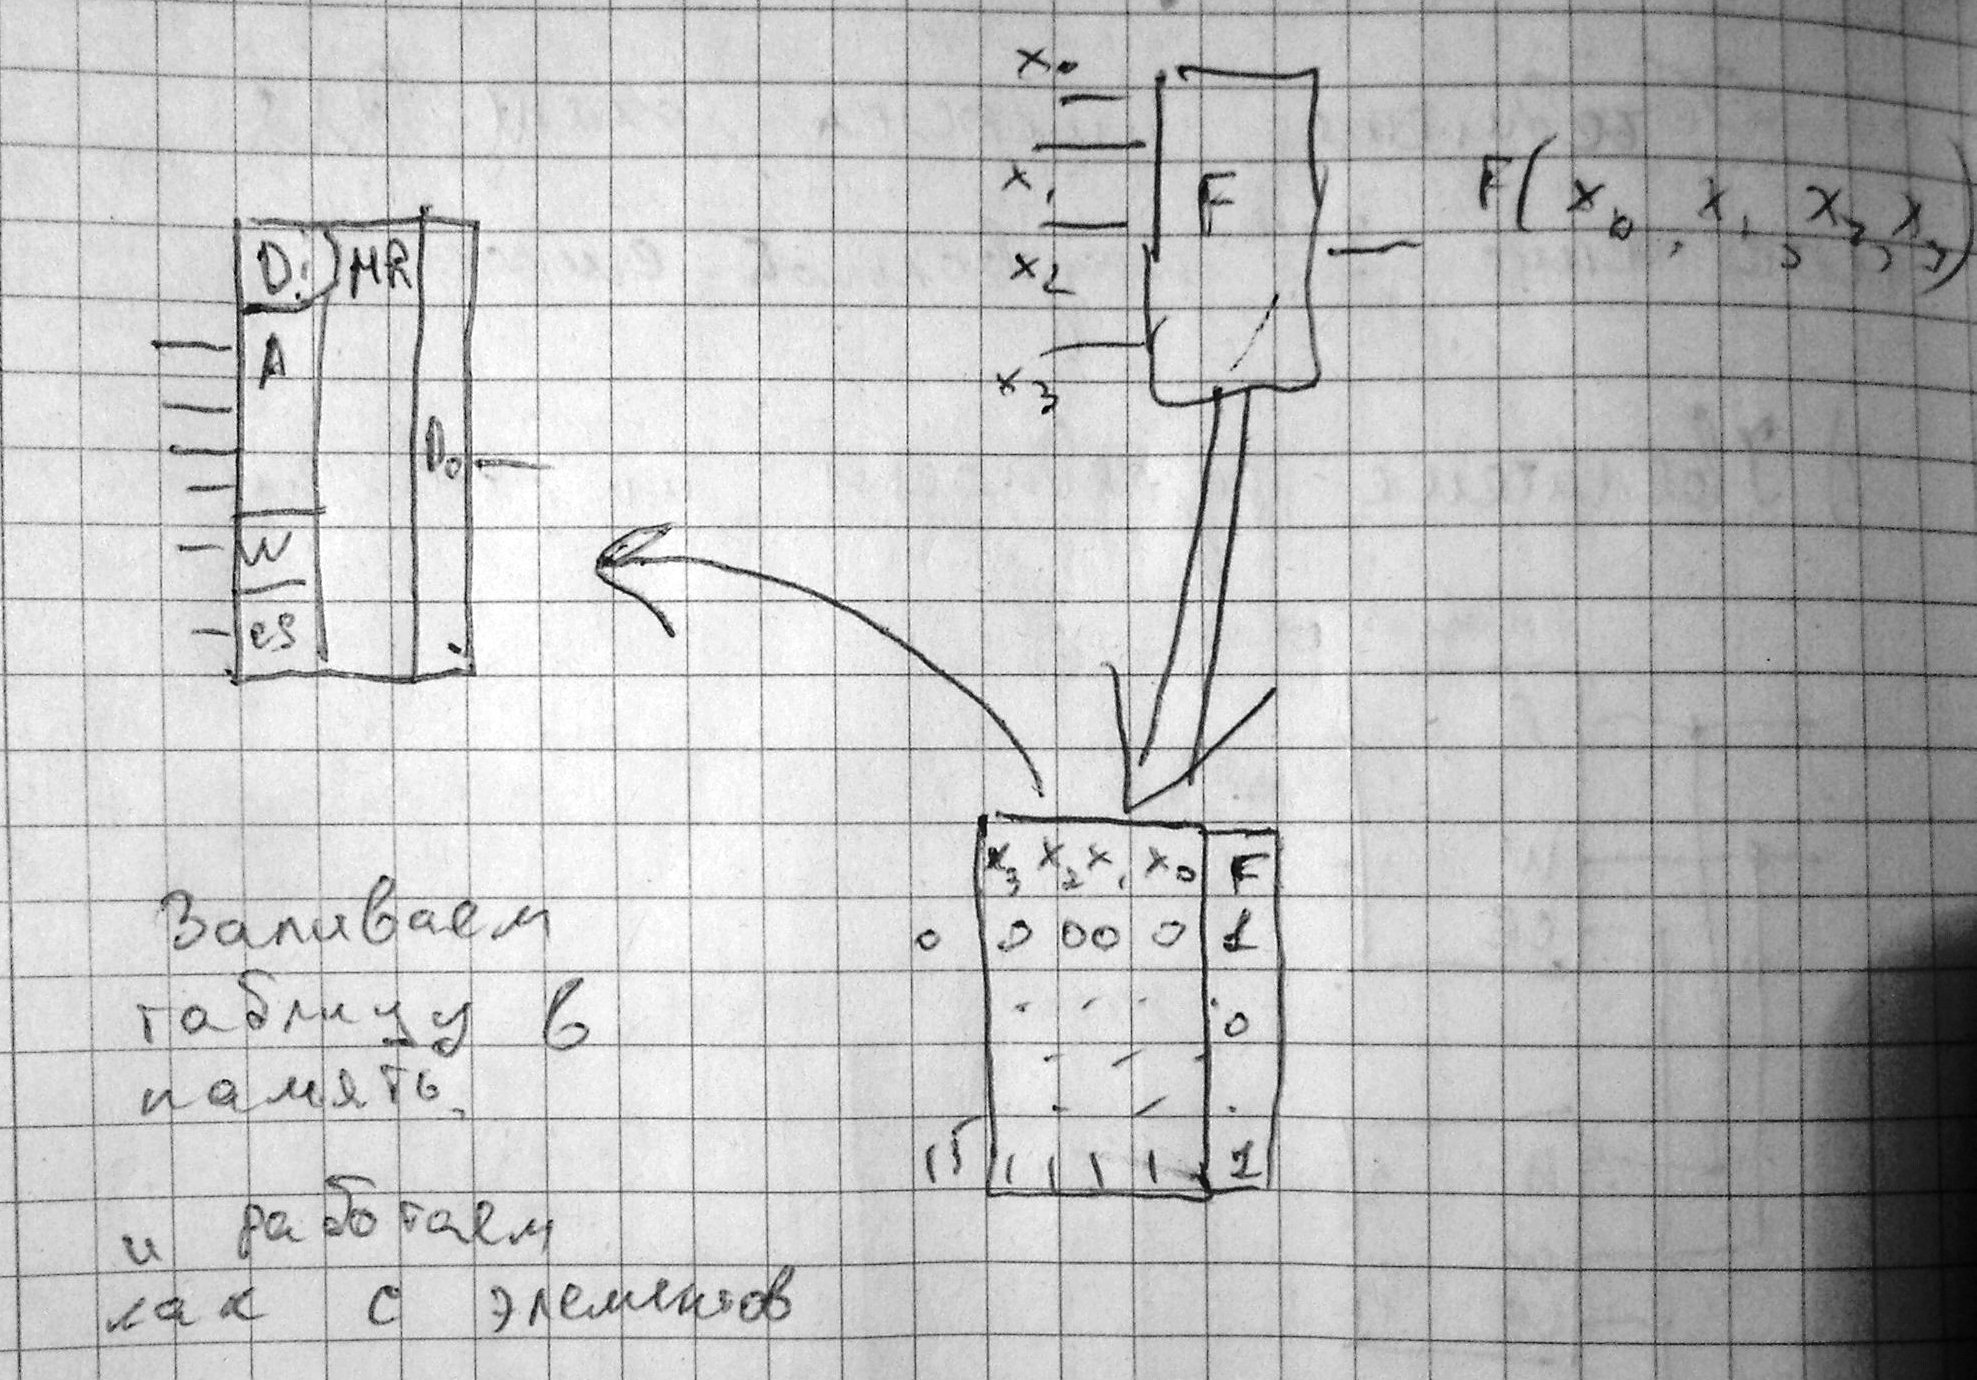 x₀
x₁
x₂
x₃
F
F(x₀, x₁, x₂, x₃)
Di MR
A
D₀
W
CS
x₃ x₂ x₁ x₀ F
0 0 0 0 0 1
0
15 1 1 1 1 1
Заливаем
таблицу в
память,
и работаем
как с элементов